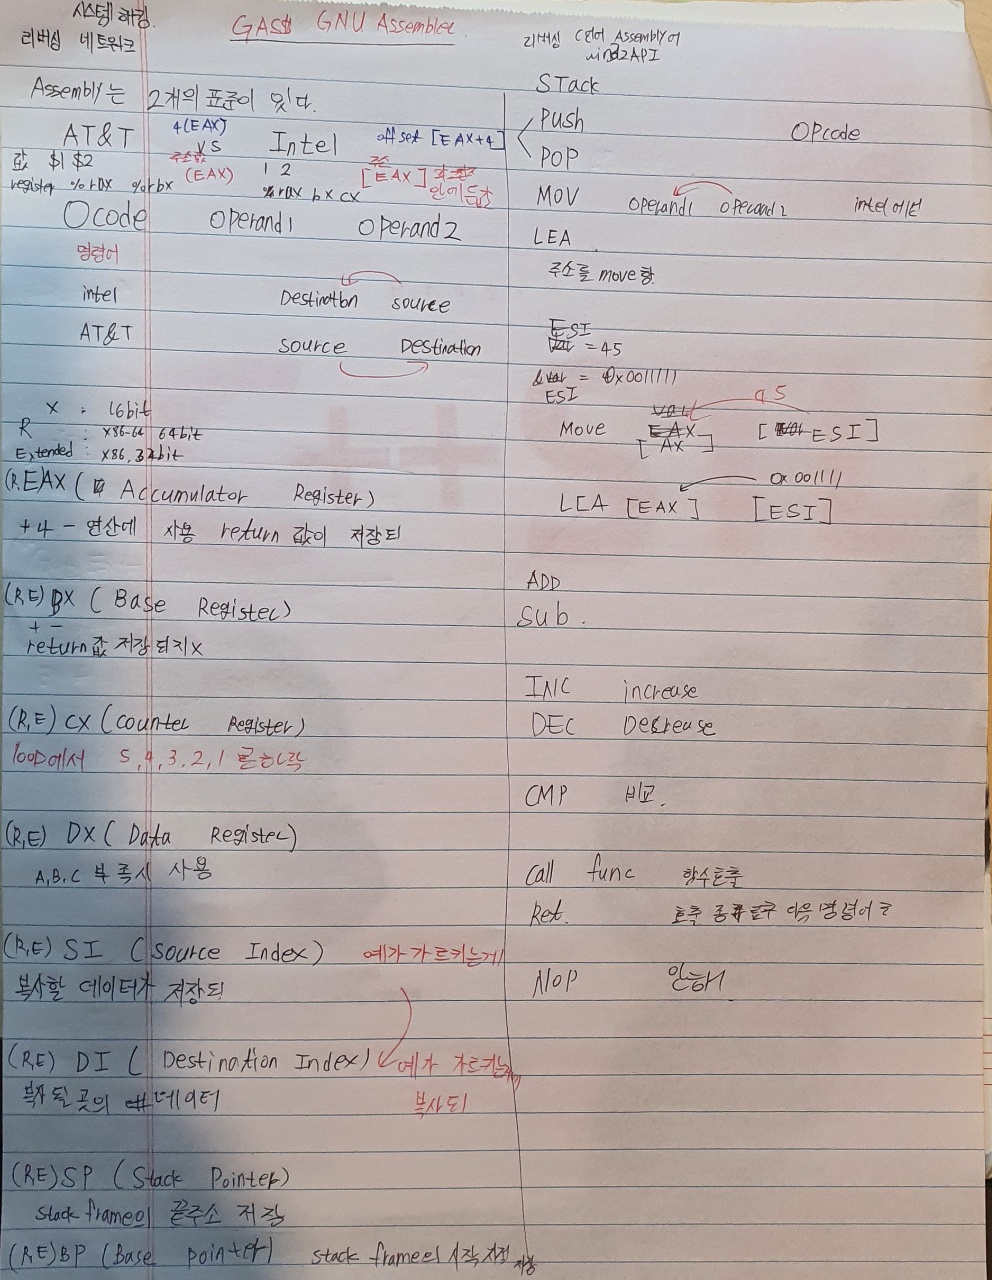 시스템 해킹
리버싱 네트워크
GAS GNU Assembler
Assembly는 2개의 표준이 있다.
AT&T 4(EAX) VS Intel offset [EAX+4]
값 $1 $2 주소값 (EAX) 1 2 주소 [EAX]
register %rax %rbx %rax bx cx
Ocode operand1 operand2
명령어
intel Destination source
AT&T source Destination
X : 16bit
R : x86-64 64bit
Extended : x86, 32bit
(R,EAX ( Accumulator Register)
+4 - 연산에 사용 return 값이 저장되
(RE) BX ( Base Register)
+ -
return 값 저장되지x
(R,E) CX (counter Register)
loop에서 5,4,3,2,1
(R,E) DX ( Data Register)
A,B,C 부족시 사용
(R,E) SI ( Source Index) 얘가 가르키는게
복사할 데이터가 저장되
(R,E) DI ( Destination Index) 얘가 가르키는
복사 될 곳의 데이터 복사되
(R,E)SP (Stack Pointer)
stack frame의 끝주소 저장
(R,E)BP (Base pointer) stack frame의 시작지점 저장
리버싱 C언어 Assembly어
win32API
STack
Push
POP
OPcode
MOV operand1 operand2 intel에선
LEA
주소를 move함
ESI
var = 45
&var = 0x001111
ESI
var 45
Move EAX [var ESI]
[AX]
0x001111
LEA [EAX] [ESI]
ADD
Sub.
INC increase
DEC Decrease
CMP 비교.
Call func 함수호출
Ret. 호출 종료후 다음 명령어로
NOP 안해